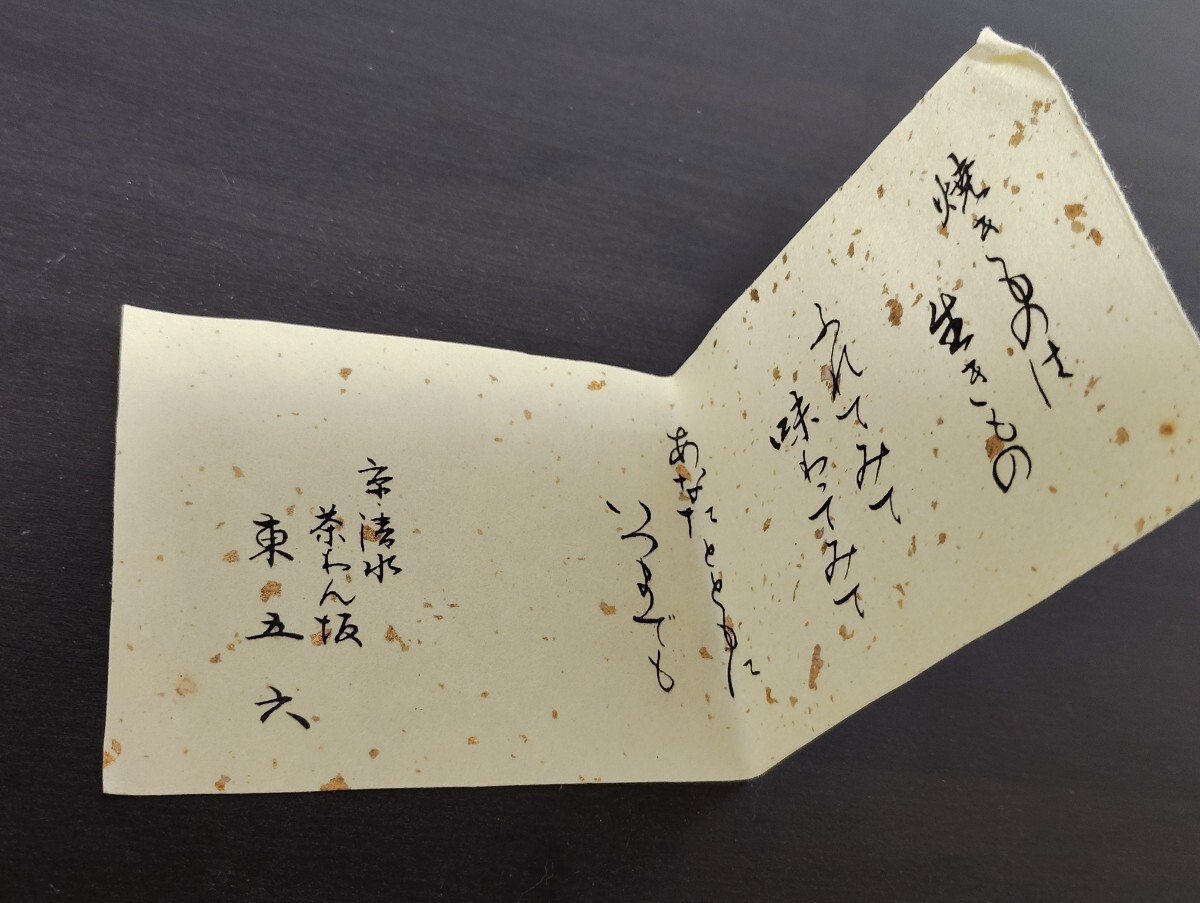 焼き物は
生きもの
ふれてみて
味わってみて
あなたとともに
いつまでも
京・清水
茶わん坂
東五六